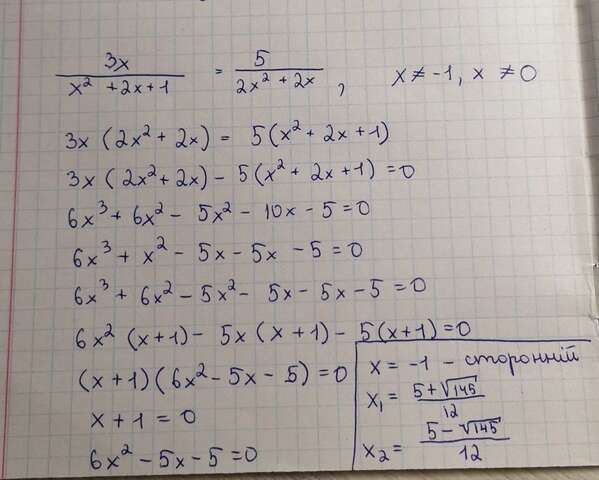 3x / (x² + 2x + 1) = 5 / (2x² + 2x) , x ≠ -1, x ≠ 0
3x (2x² + 2x) = 5(x² + 2x + 1)
3x (2x² + 2x) - 5(x² + 2x + 1) = 0
6x³ + 6x² - 5x² - 10x - 5 = 0
6x³ + x² - 5x - 5x - 5 = 0
6x³ + 6x² - 5x² - 5x - 5x - 5 = 0
6x² (x+1) - 5x (x+1) - 5(x+1) = 0
(x+1)(6x² - 5x - 5) = 0
x + 1 = 0
6x² - 5x - 5 = 0
x = -1 - сторонній
x₁ = (5 + √145) / 12
x₂ = (5 - √145) / 12